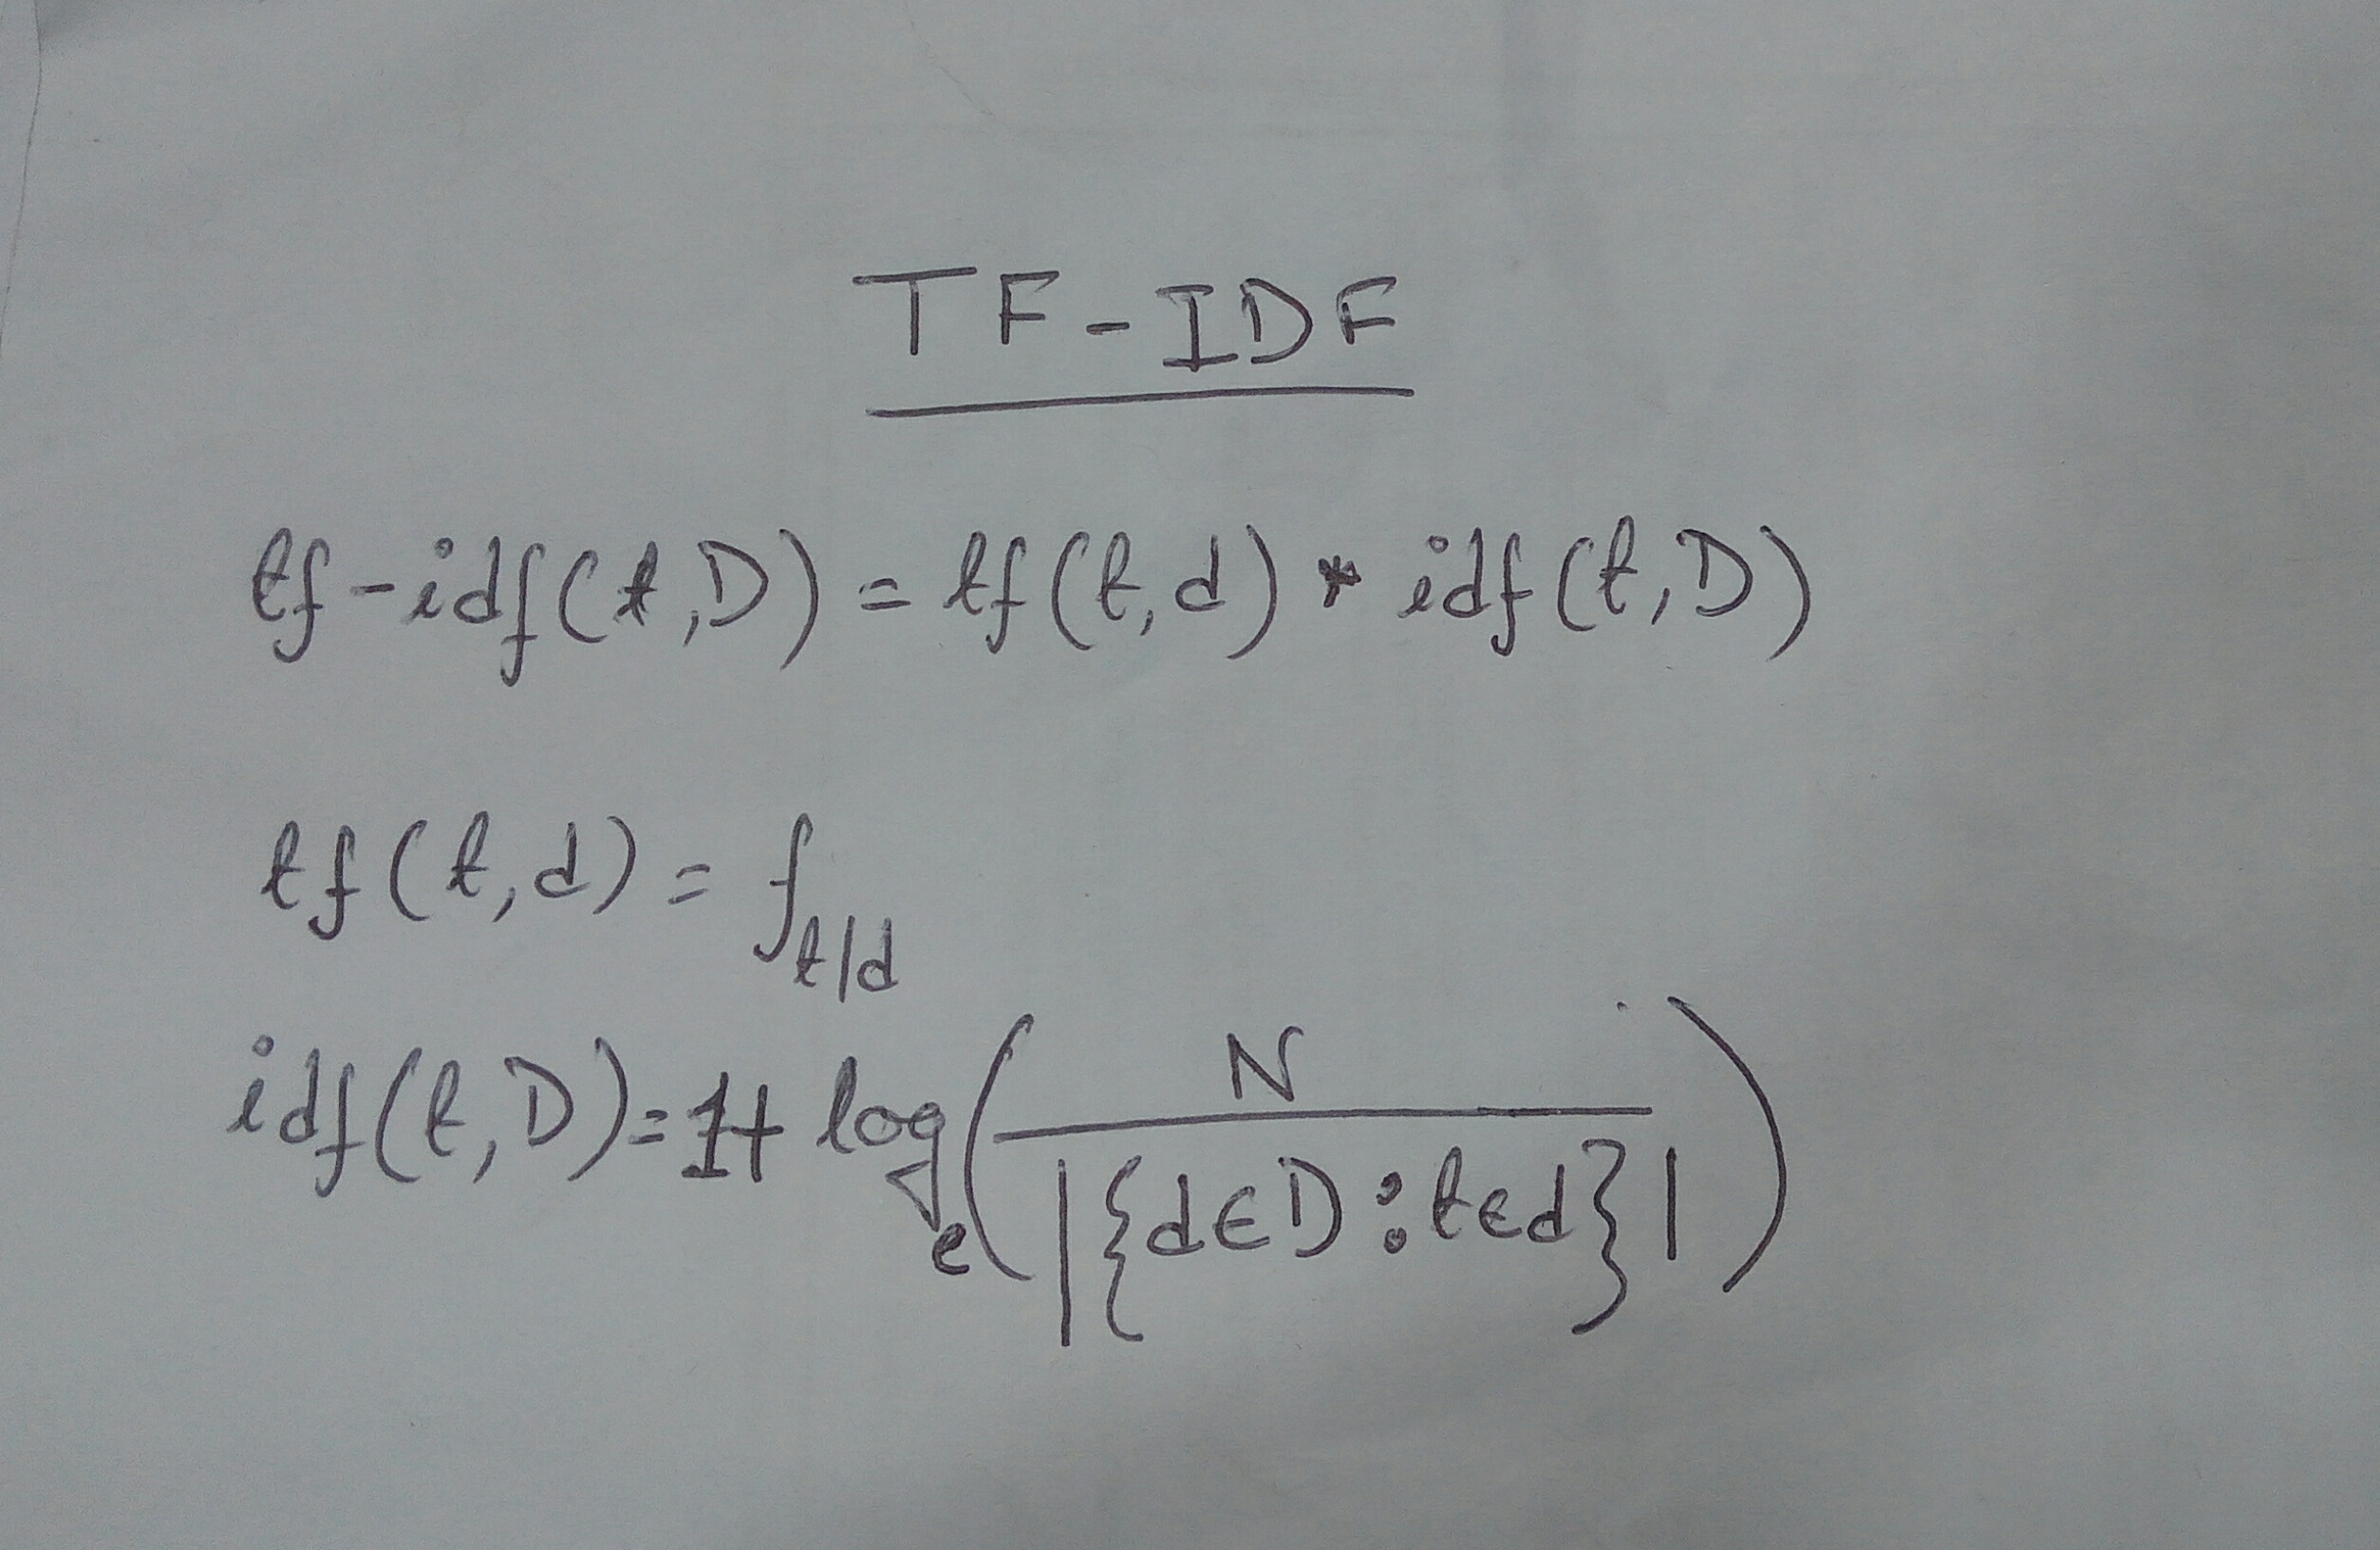 TF-IDF
tf-idf(t,D) = tf(t,d) * idf(t,D)
tf(t,d) = f_{t/d}
idf(t,D) = 1 + log_e(N / |{d∈D : t∈d}|)